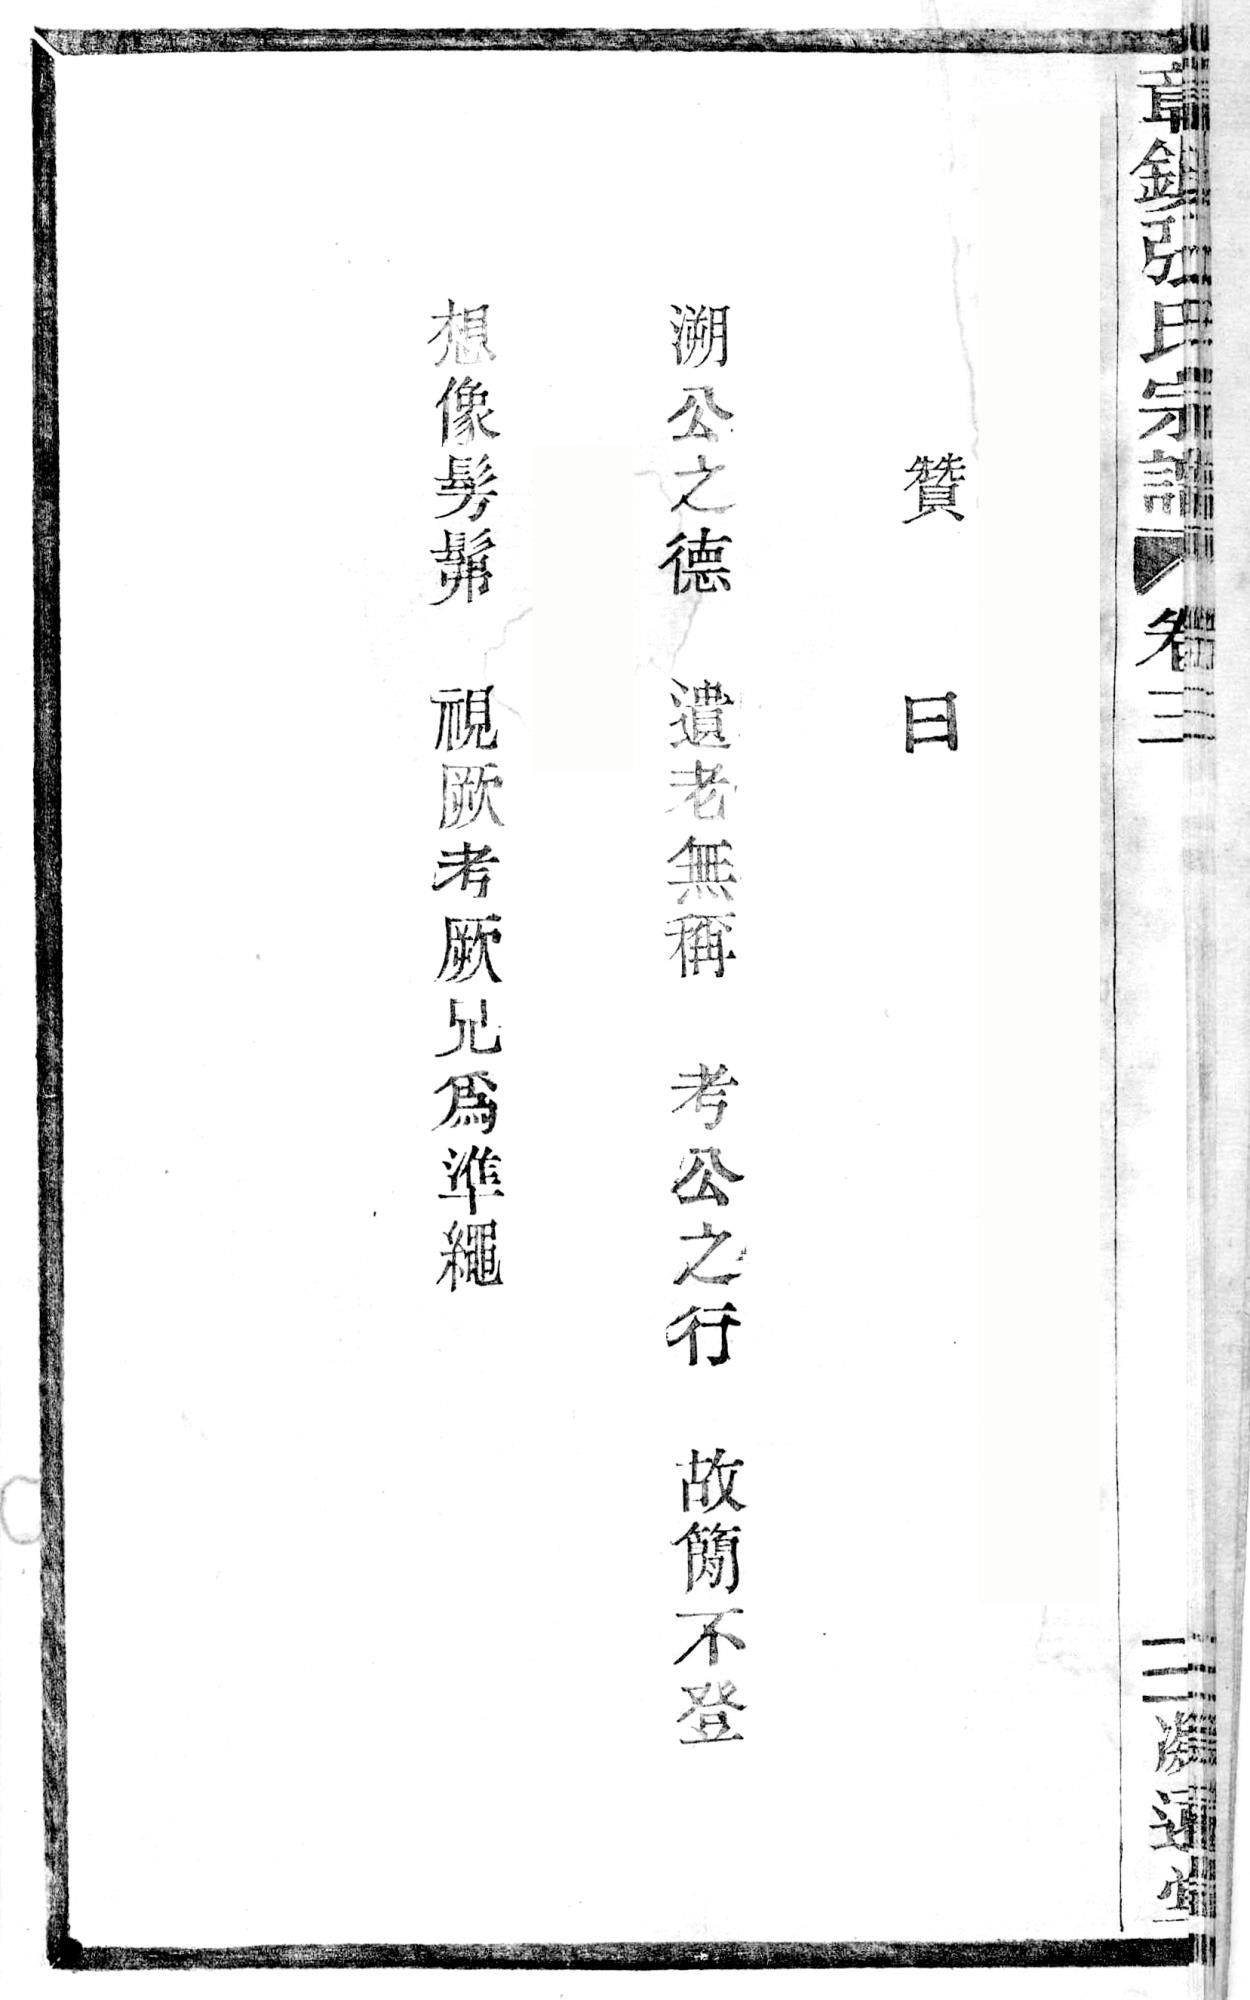 章鎮張氏宗譜 卷三
贊曰
溯公之德 遺老無稱 考公之行 故簡不登
想像髣髴 視厥考厥兄爲準繩
三 堂